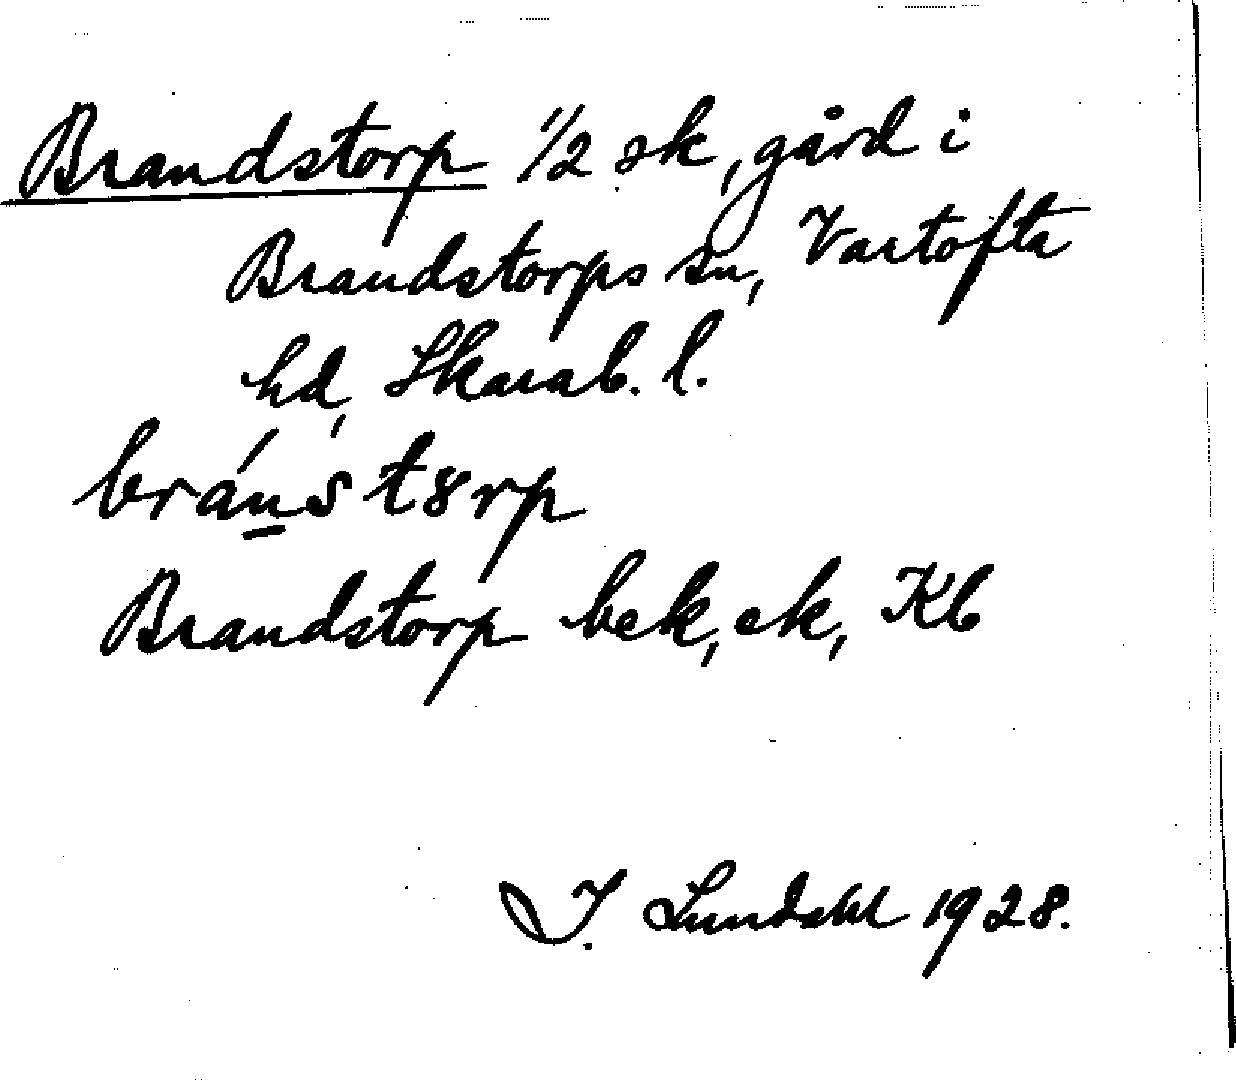 Brandstorp 1/2 sk, gård i
Brandstorps sn, Vartofta
hd, Skarab. l.
bránst8rp
Brandstorp bek, ek, Kb
I. Lundahl 1928.